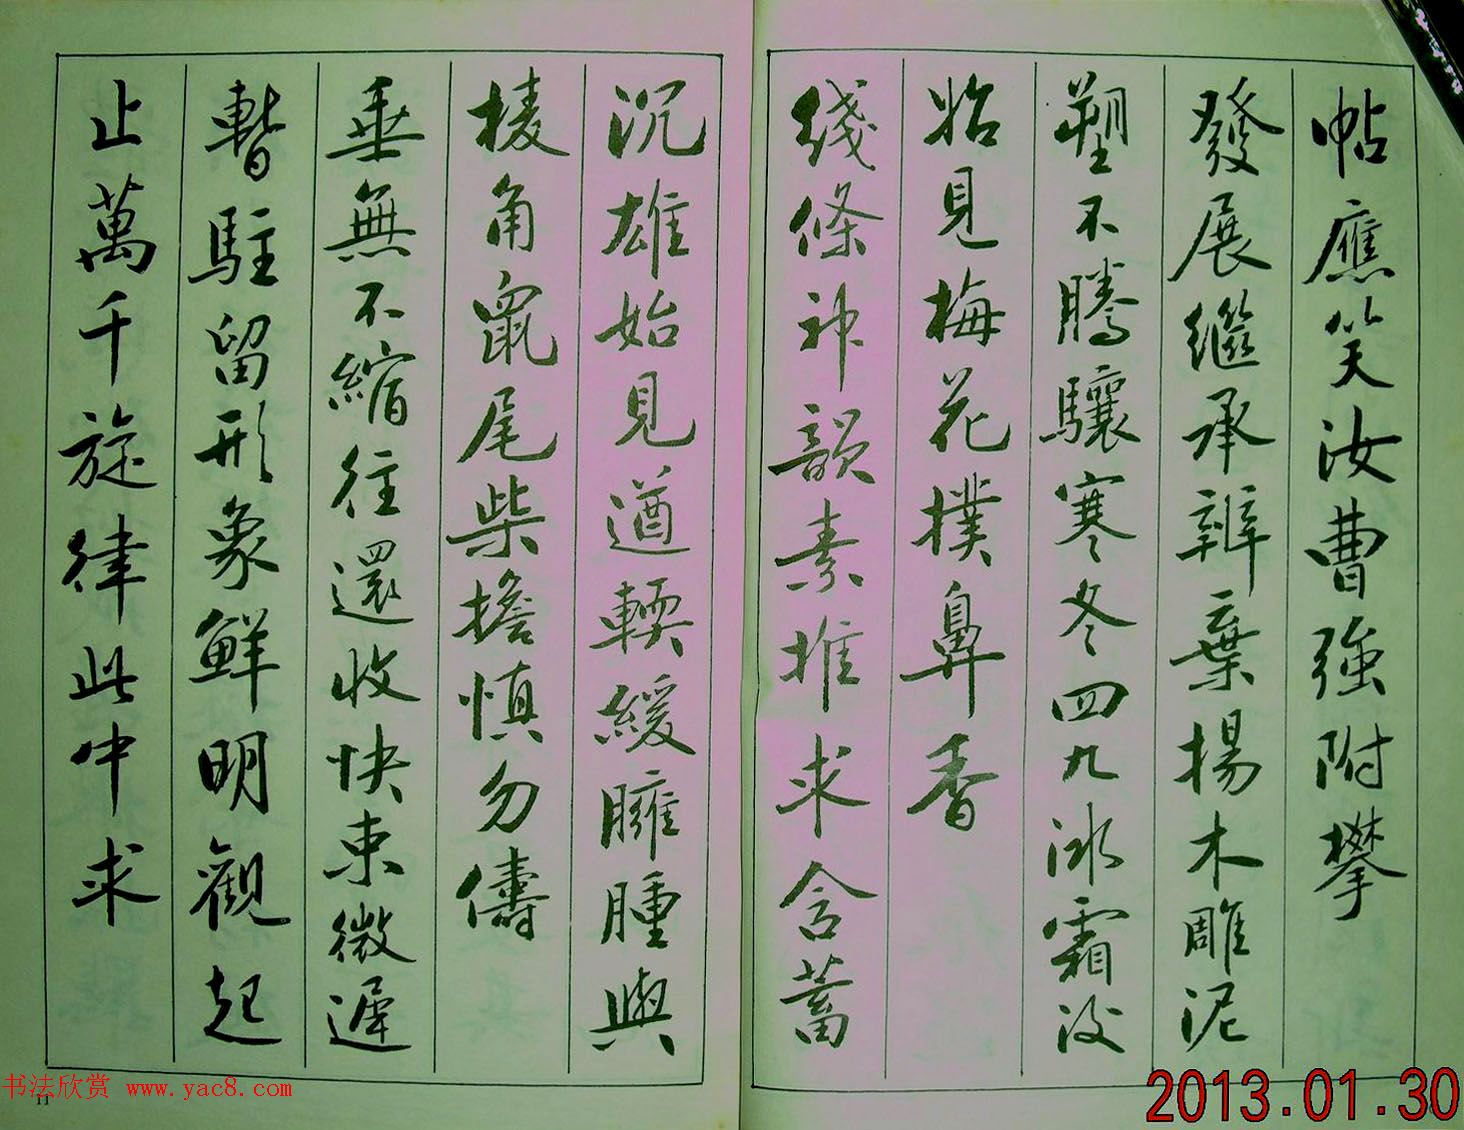 帖應笑汝曹強附攀
發展繼承辨棄揚木雕泥
塑不騰驤寒冬四九冰霜後
始見梅花撲鼻香
线條神韻素推求含蓄
沉雄始見遒輭緩臃腫與
棱角鼠尾柴擔慎勿儔
垂無不縮往還收快東微遲
暫駐留形象鮮明觀起
止萬千旋律此中求
书法欣赏 www.yac8.com
11
2013.01.30